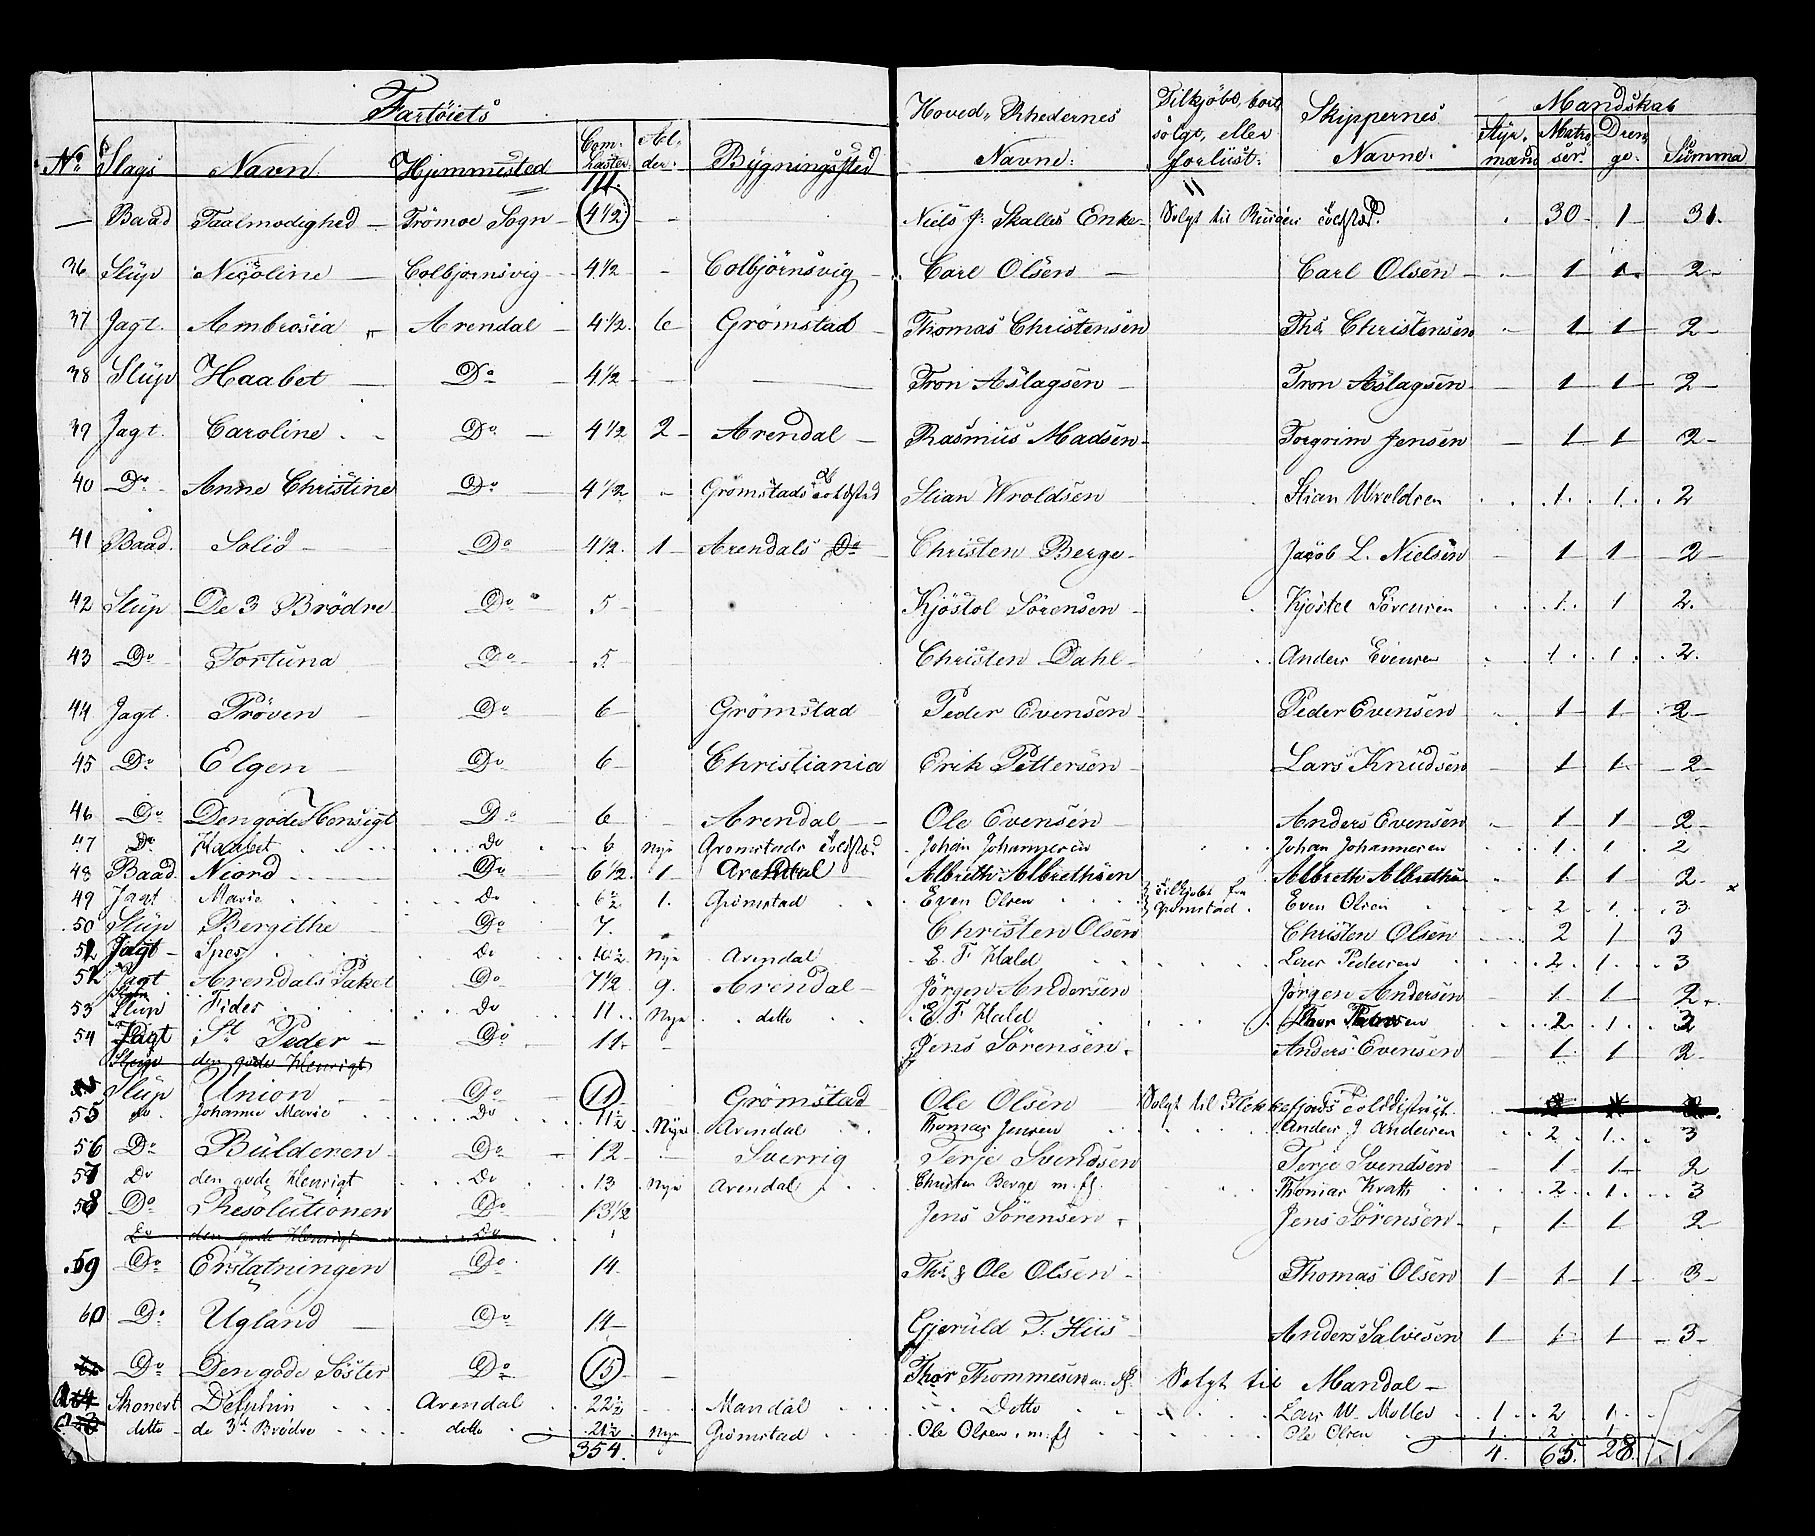 Fartöiets Hoved- Rhedernes Tilkjöbt, bort- Skippernes Mandskab
No. Slags Navn. Hjemmested Com. Laster Al- der: Bÿgningssted Navne: solgt, eller forliist: Navne: Styr- mand Matro- ser. Dren- ge. Summa
111. 11
— Baad Taalmodighed — Trömoe Sogn — 4 1/2 — — Niels J: Skalles Enke — Solgt til Toldsted. 30 1 31.
36 Slüp Nicoline — Colbjornsvig — 4 1/2 — Colbjörnsvig — Carl Olsen — Carl Olsen — 1 1 2
37 Jagt. Ambrosia Arendal — 4 1/2. 6 — Grömstad — Thomas Christensen Ths Christensen 1 1 2
38 Slüp Haabet — Do — 4 1/2 — — Tron Aslagsen — Tron Aslagsen — 1 1 2
39 Jagt. Caroline Do — 4 1/2 2 — Arendal — Rasmüs Madsen — Torgrim Jensen — 1 1 2
40 Do Anne Christine Do — 4 1/2 — Grömstads Toldsted Stian Wroldsen Stian Wroldsen 1. 1. 2
41 Baad. Solid — Do — 4 1/2. 1 — Arendals Do Christen Berge — Jacob L. Nielsen — 1 1 2
42 Slüp De 3 Brödre Do — 5 — Kjöstol Sörensen — Kjöstel Sörensen 1. 1 2.
43 Do Fortuna Do — 5 Christen Dahl — Anders Evensen 1. 1. 2.
44 Jagt. Pröven — Do — 6 Grömstad Peder Evensen — Peder Evensen 1 1 2
45 Do Elgen — Do — 6 — Christiania Erik Pettersen — Lars Knüdsen 1 1 2
46 Do Den gode Hensigt Do — 6 — Arendal — Ole Evensen — Anders Evensen 1 1 2
47 Do Haabet Do 6 Nye Gromstads Toldsted Johan Johannesen Johan Johannesen 1. 1. 2
48 Baad Neord Do 6 1/2 1 Arendal Albreth Albrethsen Albreth Albrethsen 1 1 2
49 Jagt Marie Do 6 1/2 1. Grömstad Even Olsen Tilkjobt fra Grömstad. Even Olsen 2 1. 3
50 Slüp Bergithe — Do — 7. Christen Olsen Christen Olsen 2 1 3
51 Jagt — Spes Do 10 1/2 Nye Arendal E. F. Hald Lars Pedersen 2. 1. 3
52 Jagt Arendals Paket Do 7 1/2 9. Arendal — Jörgen Andersen Jörgen Andersen 1 1 2
53 Slup Fider Do 11 Nye detto E. F. Hald 2 1. 3
54 Jagt St Peder — Do 11 — Jens Sörensen. Anders Evensen 1 1 2
den gode Hensigt
Slüp Union — Do — 11 Grömstad Ole Olsen Solgt til Tolddistrigt.
55 do Johanne Marie Do 11 1/2 Nye Arendal Thomas Jensen Anders J Andersen 2 1. 3
56 Do Bülderen — Do — 12 — Sverrig Terje Svendsen Terje Svendsen 1 1 2
57 Do den gode Hensigt Do 13 Nye Arendal Christen Berge m. fl. Thomas Krath 2. 1. 3
58 Do Resolütionen Do 13 1/2 Jens Sörensen Jens Sörensen — 1 1 2
Do den gode Hensigt Do
59 Do Erstatningen Do — 14 Ths & Ole Olsen — Thomas Olsen 1 1 1 3
60 Do Ugland — Do 14 — Gjerüld T. Hiis — Anders Salvesen 1 1 1 3
Do Den gode Söster Do 15 — Thor Thommesen m. fl. Solgt til Mandal —
Skonert Delphin Arendal 22 1/2 Mandal Detto Lars W. Moller 1. 2 1.
detto de 3de Brödre detto 21 1/2 Nye Grömstad Ole Olsen m. fl Ole Olsen 1. 2 1.
354. 4. 65. 28.